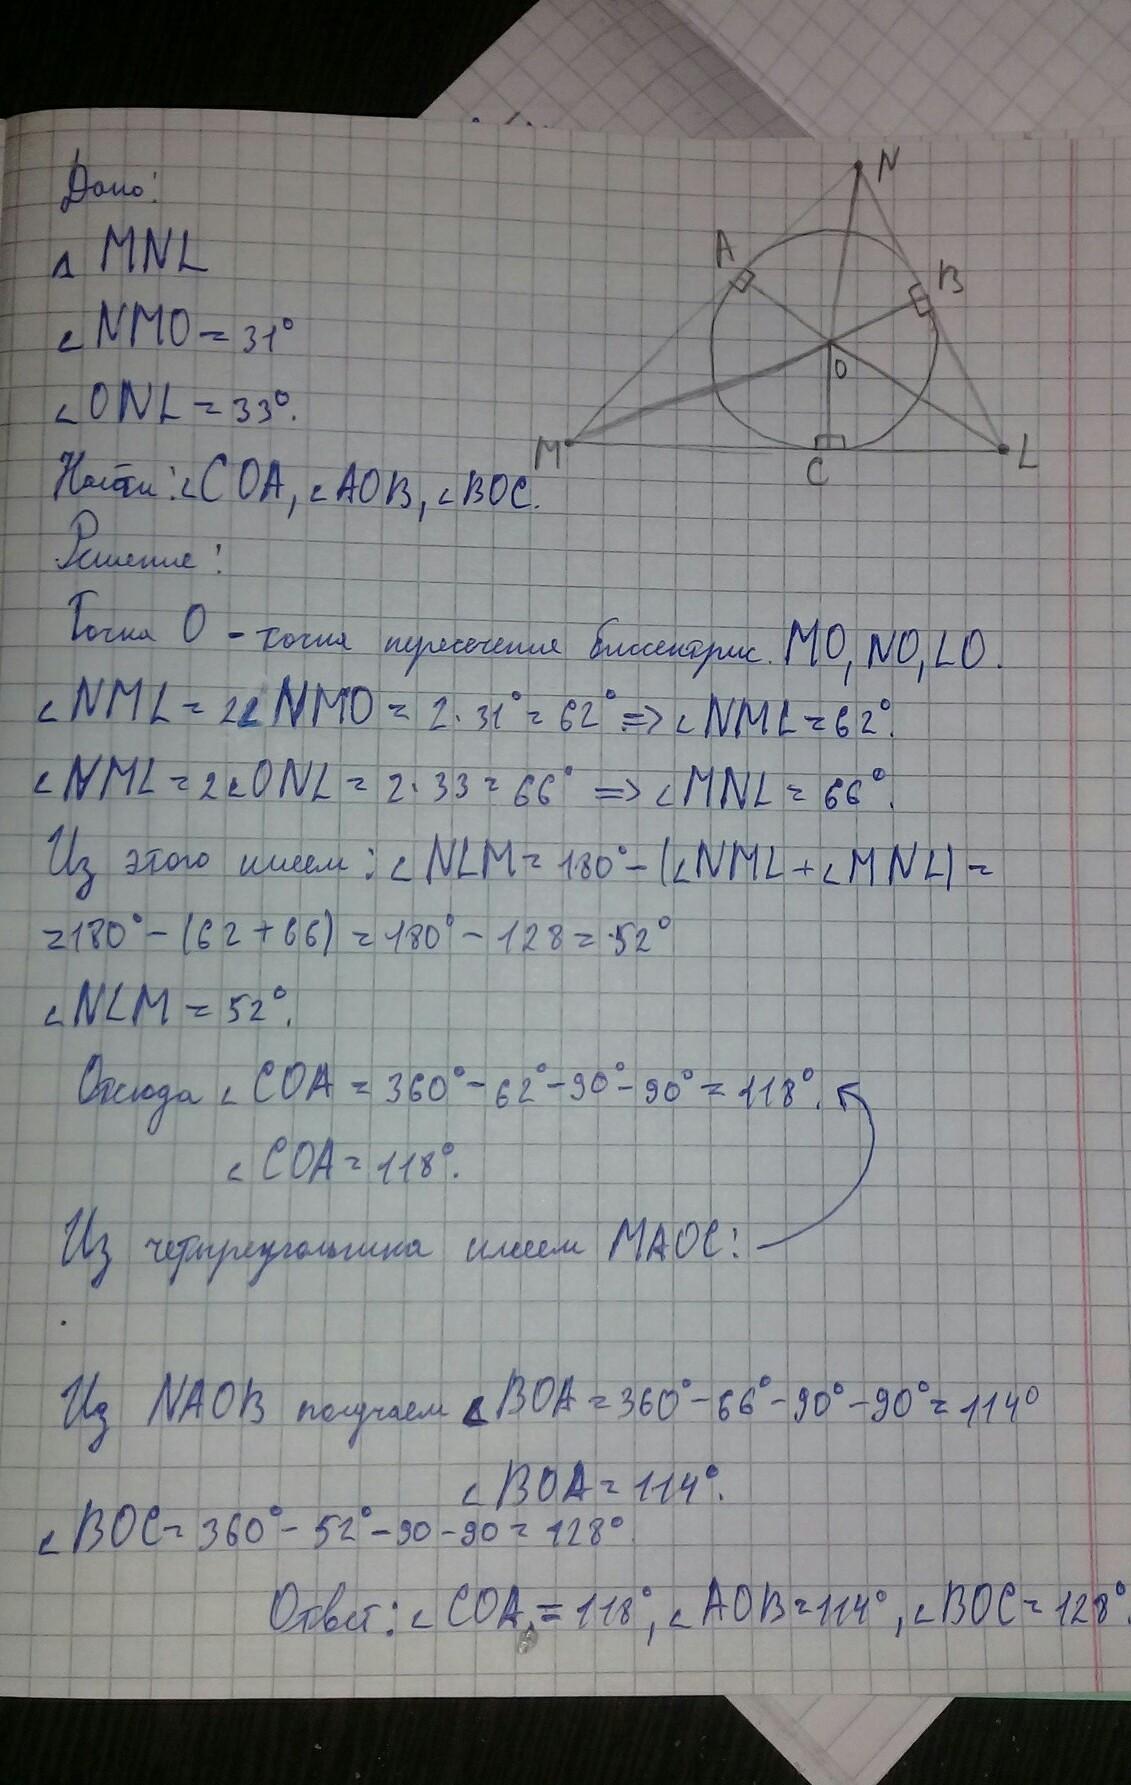 Дано:
△ MNL
∠NMO = 31°
∠ONL = 33°.
Найти: ∠COA, ∠AOB, ∠BOC.
N
A
B
O
M
C
L
Решение:
Точка O - точка пересечения биссектрис. MO, NO, LO.
∠NML = 2∠NMO = 2·31° = 62° => ∠NML = 62°.
∠NML = 2∠ONL = 2·33 = 66° => ∠MNL = 66°.
Из этого имеем: ∠NLM = 180° - (∠NML + ∠MNL) =
= 180° - (62 + 66) = 180° - 128 = 52°
∠NLM = 52°.
Отсюда ∠COA = 360° - 62° - 90° - 90° = 118°.
∠COA = 118°.
Из четыреугольника имеем MAOC:
Из NAOB получаем ∠BOA = 360° - 66° - 90° - 90° = 114°
∠BOA = 114°.
∠BOC = 360° - 52° - 90 - 90 = 128°.
Ответ: ∠COA, = 118°, ∠AOB = 114°, ∠BOC = 128°.